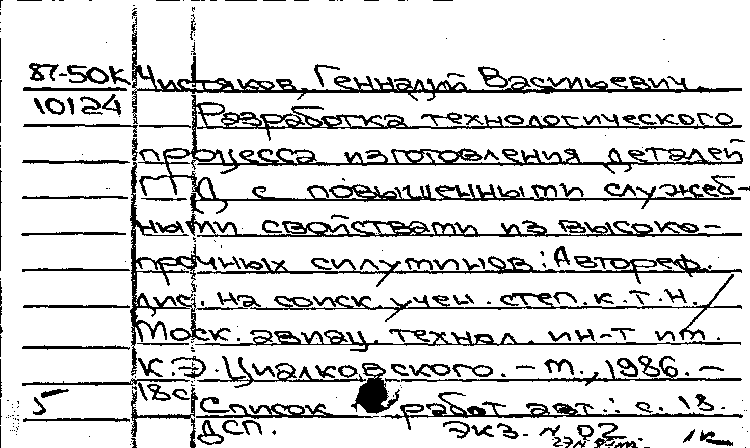 87-50К Чистяков, Геннадий Васильевич.
10124 Разработка технологического
процесса изготовления деталей
ГТД с повышенными служеб-
ными свойствами из высоко-
прочных силуминов: Автореф.
дис. на соиск. учен. степ. к.т.н.
Моск. авиац. технол. ин-т им.
К.Э. Циалковского. - М., 1986. -
18с
5 Список работ авт.: с. 18.
ДСП. Экз. № 02
1к